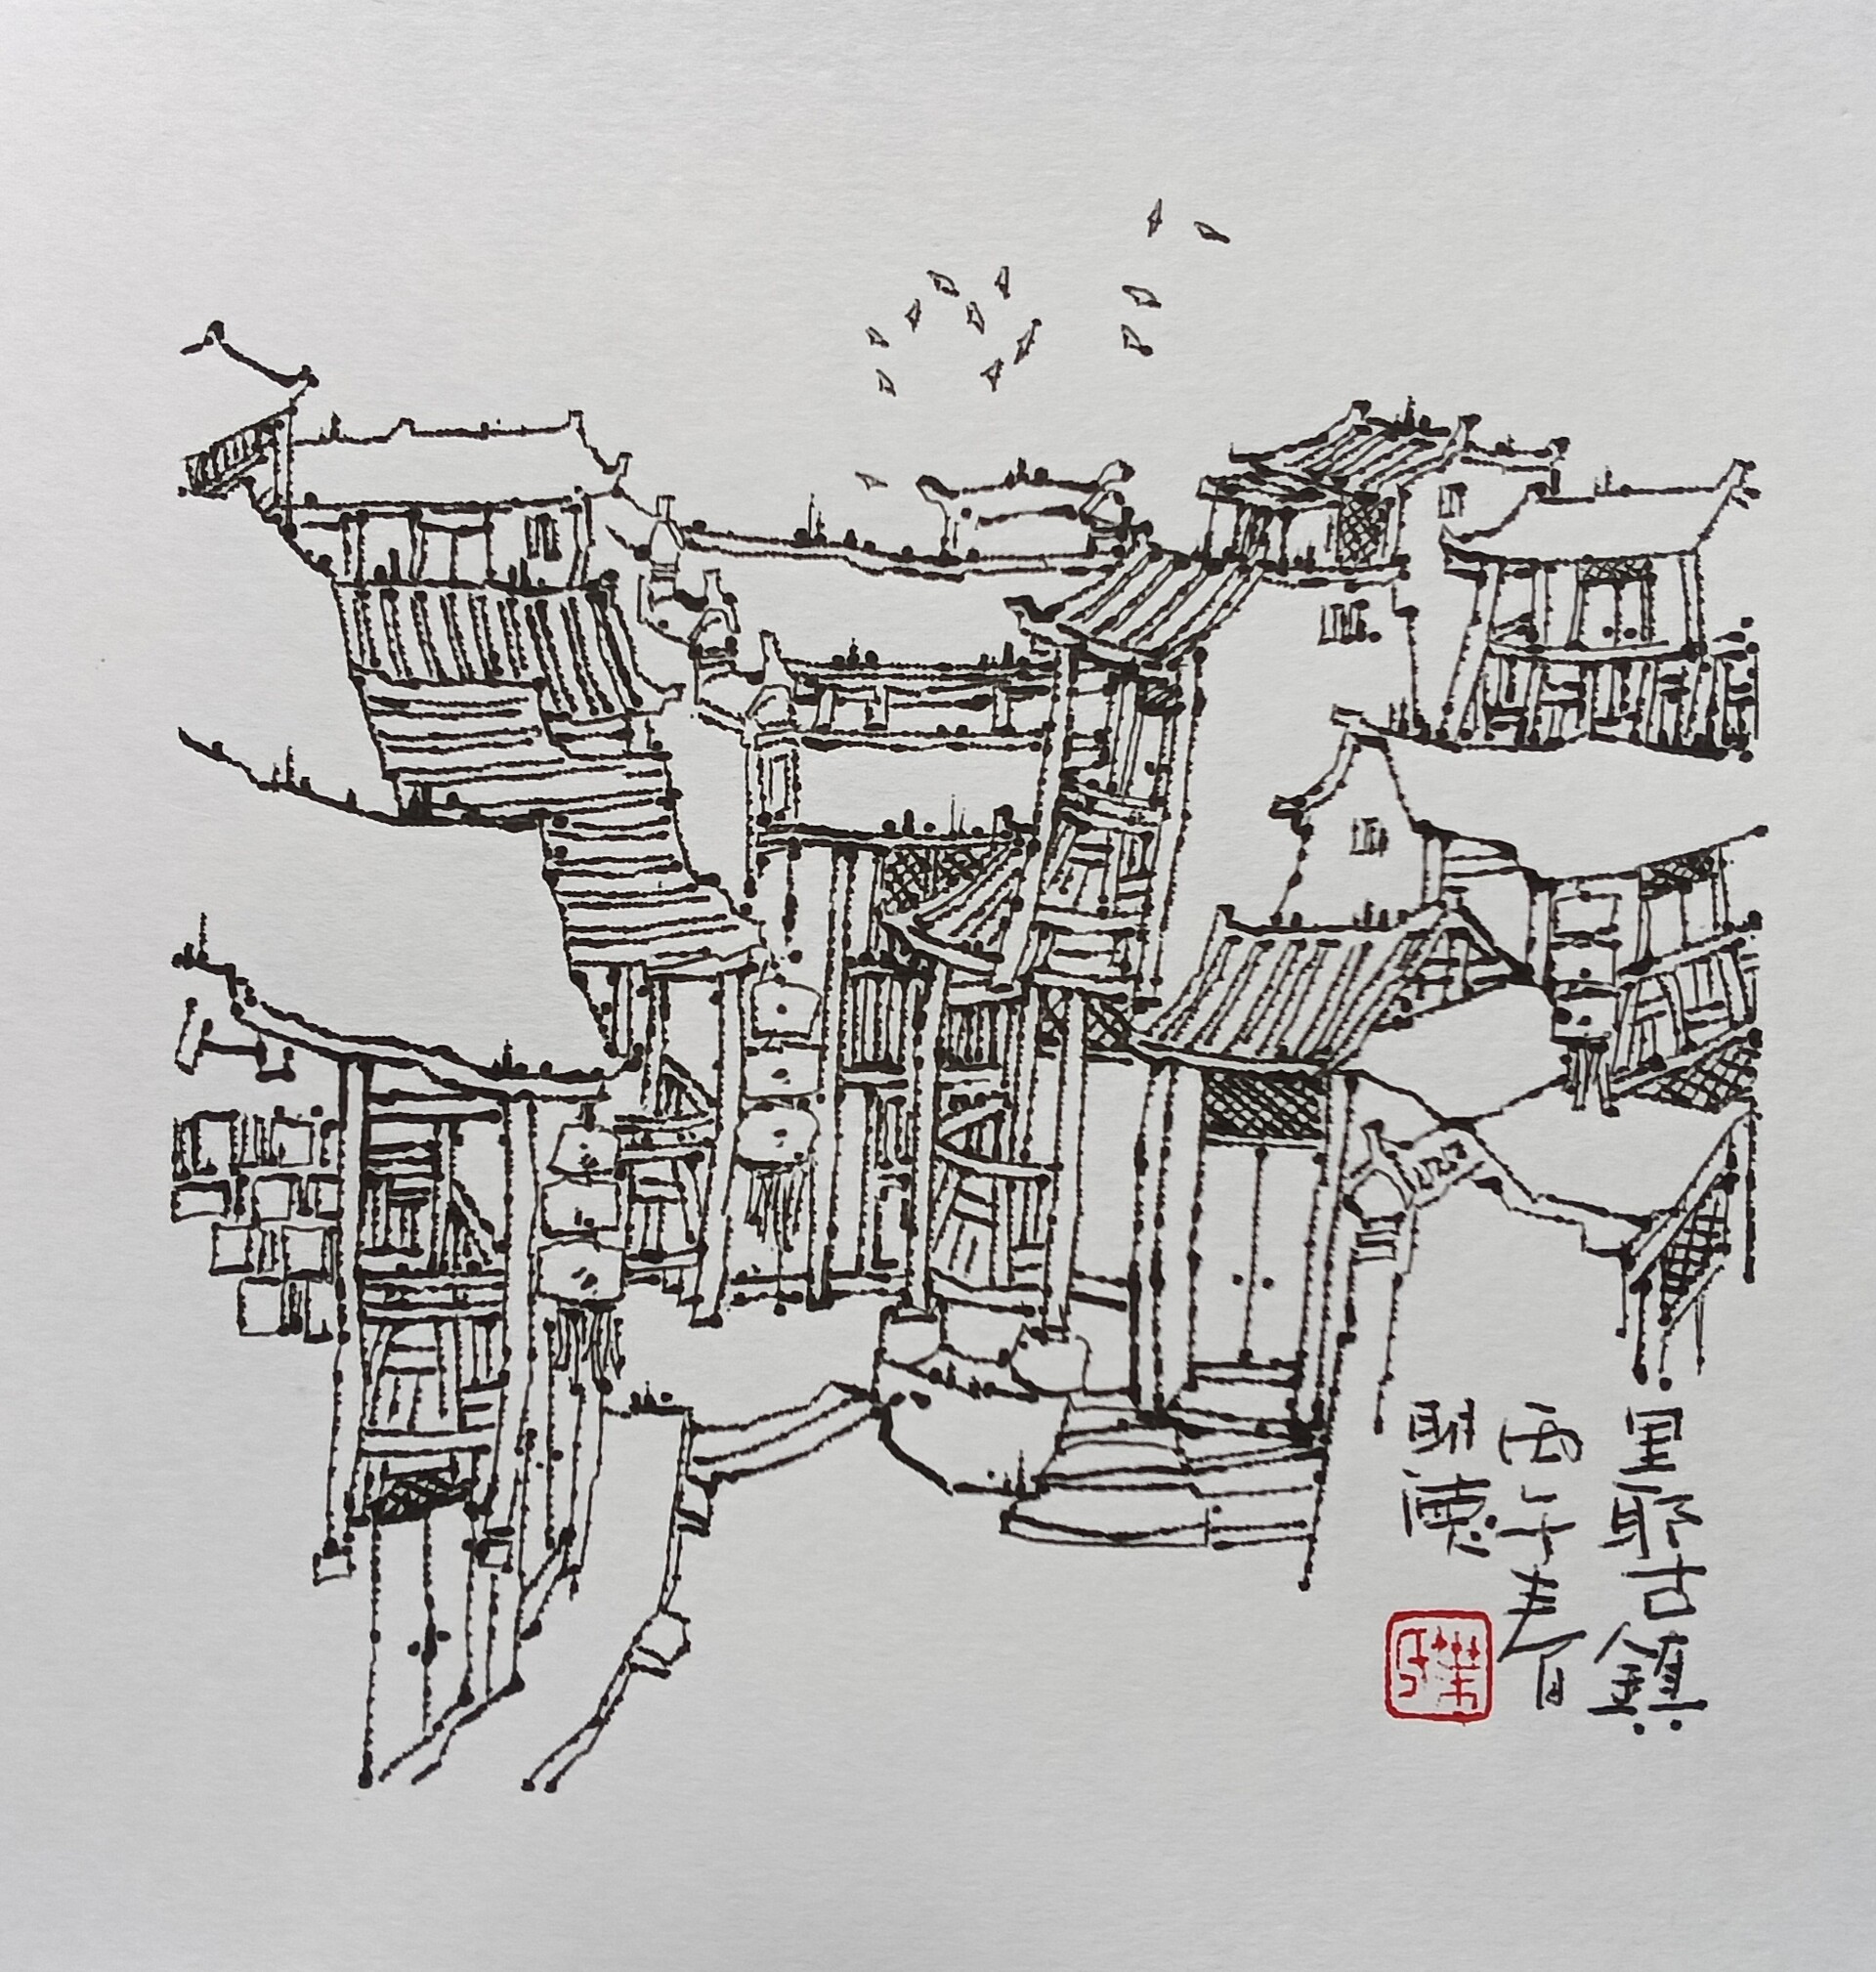 里耶古鎮
丙午春月
明德